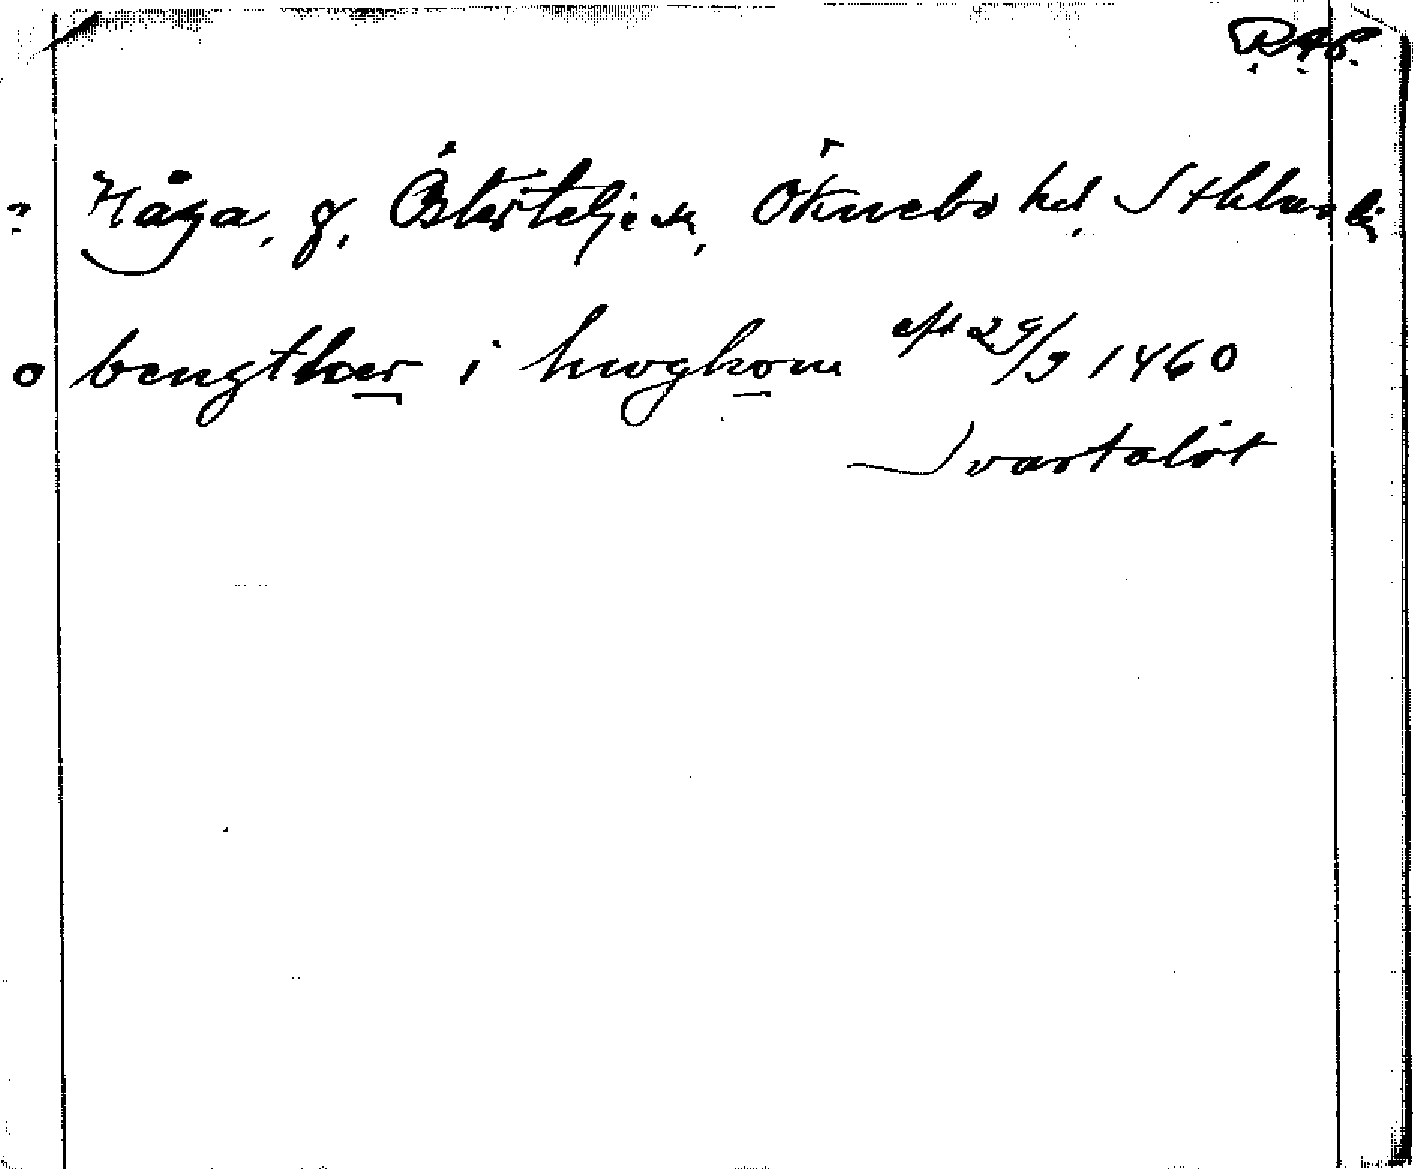 RAp.
? Håga, g. Österteljesn, Öknebo hd. Sthlms län
o bengther i hwghom eft 29/9 1460
Svartalöt